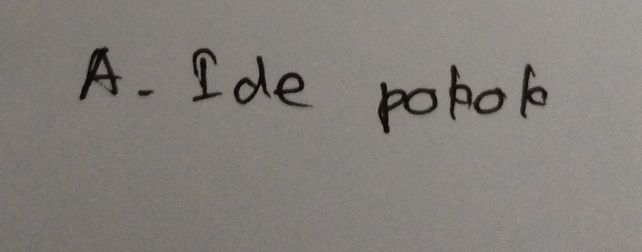 A. Ide pokok